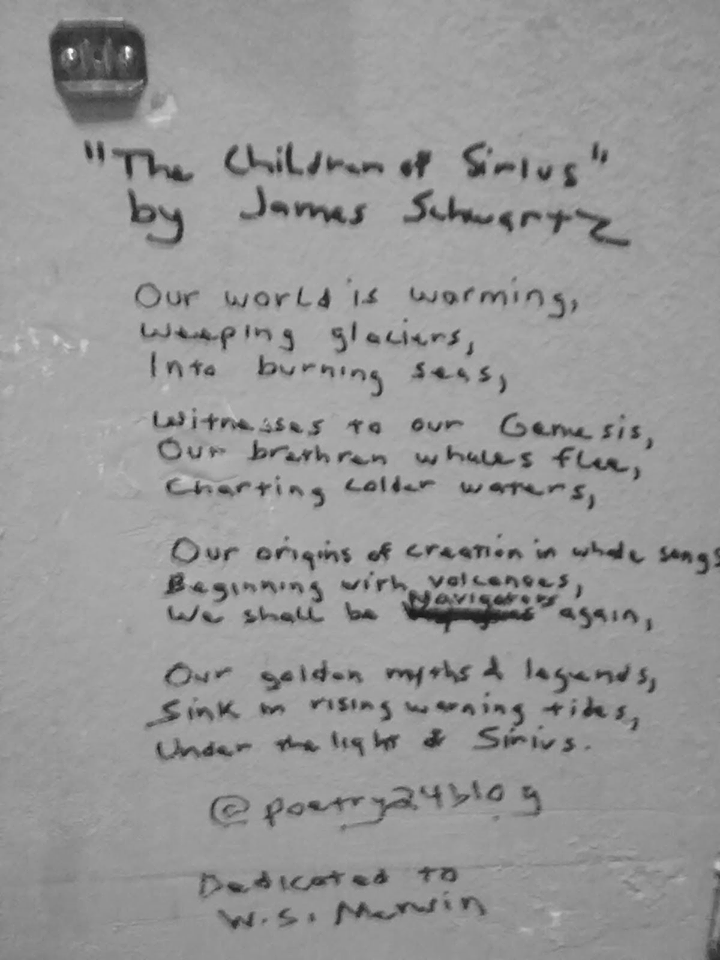 "The Children of Sirius"
by James Schwartz
Our world is warming,
Weeping glaciers,
Into burning seas,
Witnesses to our Genesis,
Our brethren whales flee,
Charting colder waters,
Our origins of creation in whale songs
Beginning with volcanoes,
We shall be Navigators again,
Our golden myths & legends,
Sink in rising warning tides,
Under the light of Sirius.
@poetry24blog
Dedicated to
W.S. Merwin